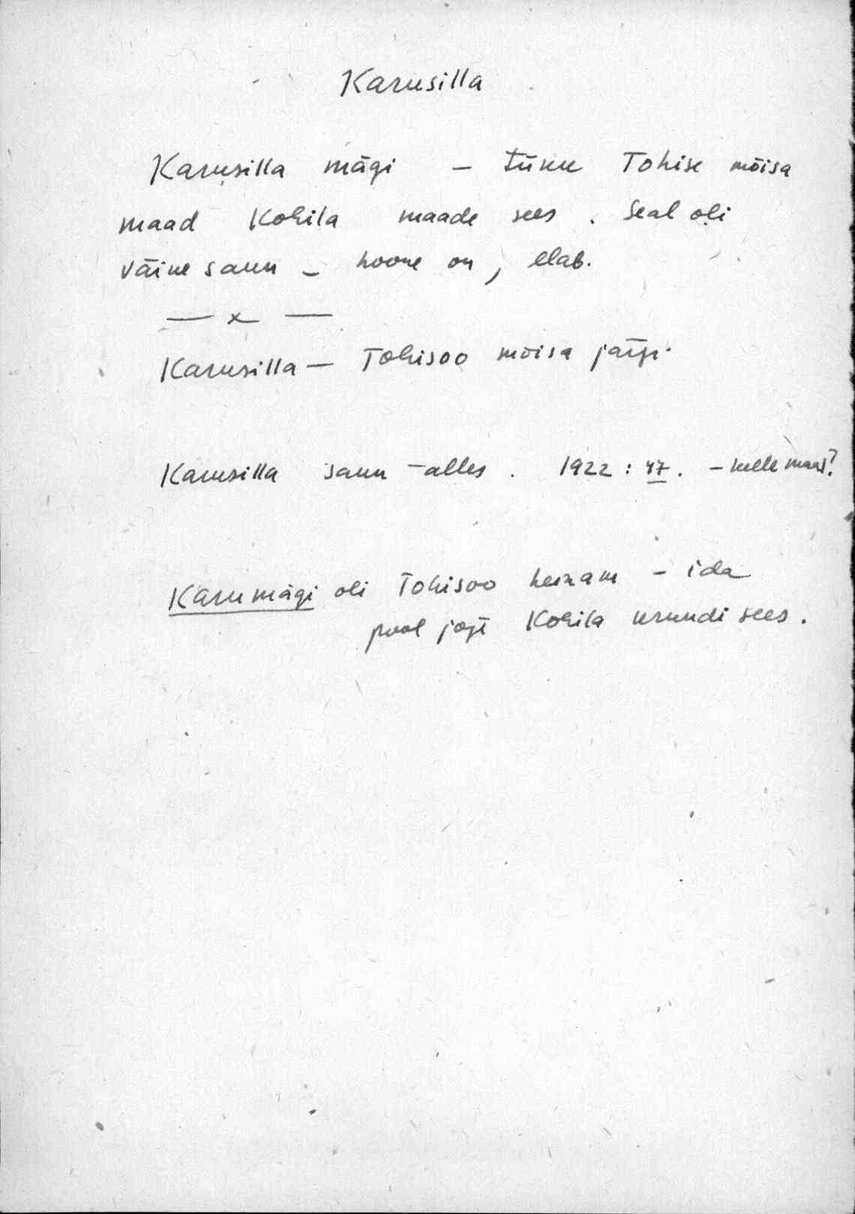 Karusilla
Karusilla mägi – tükk Tohise mõisa
maad Kohila maade sees. Seal oli
väine saun – hoone on, elab.
— x —
Karusilla – Tohisoo mõisa järgi.
Karusilla saun – alles. 1922: 47. – kelle maas?
Karumägi oli Tohisoo heinam – ida
pool jõge Kohila krundi sees.